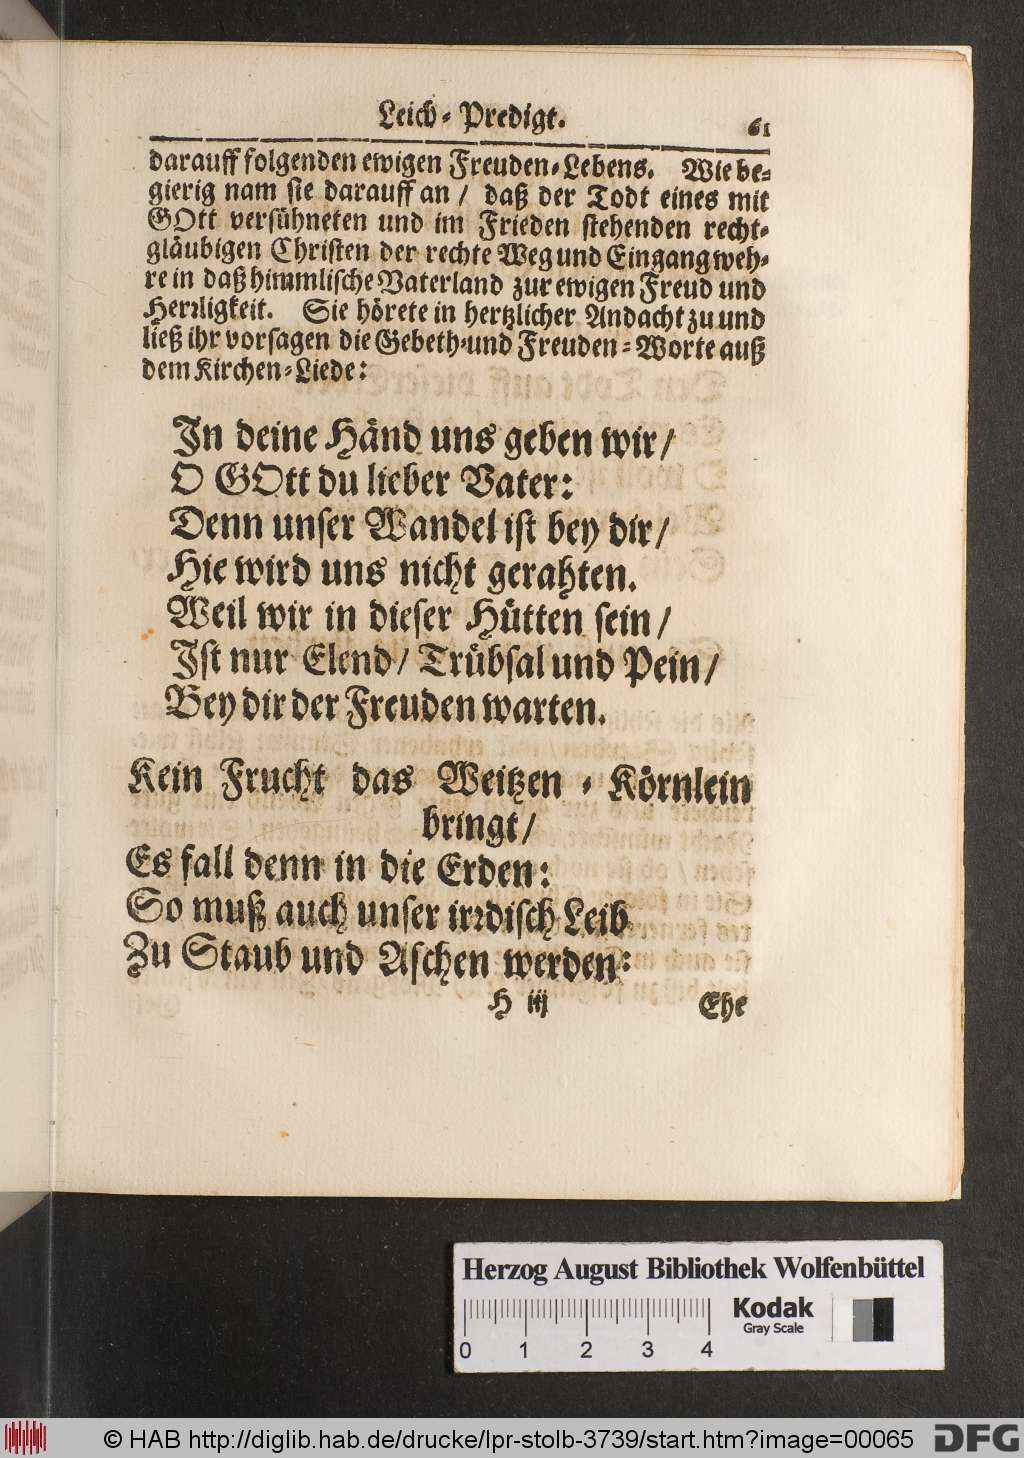 Leich-Predigt. 61
darauff folgenden ewigen Freuden-Lebens. Wie be-
gierig nam sie darauff an / daß der Todt eines mit
GOtt versühneten und im Frieden stehenden recht-
gläubigen Christen der rechte Weg und Eingang weh-
re in daß himmlische Vaterland zur ewigen Freud und
Herꝛligkeit. Sie hörete in hertzlicher Andacht zu und
ließ ihr vorsagen die Gebeth-und Freuden-Worte auß
dem Kirchen-Liede:
In deine Händ uns geben wir/
O GOtt du lieber Vater:
Denn unser Wandel ist bey dir/
Hie wird uns nicht gerahten.
Weil wir in dieser Hütten sein/
Ist nur Elend/ Trübsal und Pein/
Bey dir der Freuden warten.
Kein Frucht das Weitzen-Körnlein
bringt/
Es fall denn in die Erden:
So muß auch unser irꝛdisch Leib
Zu Staub und Aschen werden:
H iij Ehe
Herzog August Bibliothek Wolfenbüttel
Kodak
Gray Scale
0 1 2 3 4
© HAB http://diglib.hab.de/drucke/lpr-stolb-3739/start.htm?image=00065 DFG